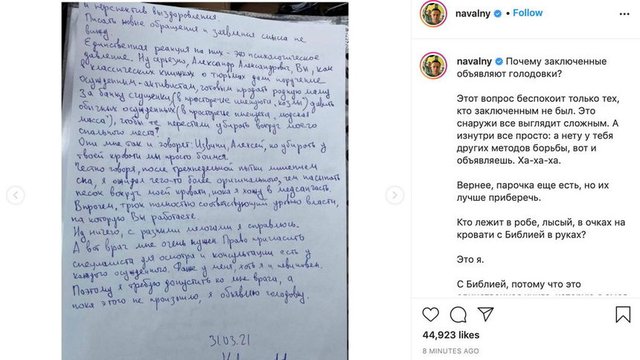 и перспектив выздоровления
Писать новые обращения и заявления смысла не
вижу
Единственная реакция на них - это психологическое
давление. Ну серьезно, Александр Александрович, Вы, как
в классических книжках о тюрьмах даёт поручение
осужденным-активистам, готовым продать родную маму
за банку сгущенки (в просторечие именуются, козлы) давить
обычных осужденных (в просторечие именуется,
масса), чтобы те перестали убирать вокруг моего
спального места?
Они мне так и говорят: Извини, Алексей, но убирать у
твоей кровати мы просто боимся.
Честно говоря, после трехнедельной пытки лишением
сна, я ожидал чего-то более оригинального, чем насыпать
песок вокруг моей кровати, пока я хожу в медсанчасть.
Впрочем, трюк полностью соответствует уровню власти,
на которую Вы работаете.
Ну ничего, с разными мелочами я справлюсь.
А вот врач мне очень нужен. Право пригласить
специалиста для осмотра и консультации есть у
каждого осужденного. Даже у меня, хоть я и невиновен.
Поэтому я требую допустить ко мне врача, а
пока этого не произошло, я объявляю голодовку.
31.03.21
navalny • Follow
navalny Почему заключенные
объявляют голодовки?
Этот вопрос беспокоит только тех,
кто заключенным не был. Это
снаружи все выглядит сложным. А
изнутри все просто: а нету у тебя
других методов борьбы, вот и
объявляешь. Ха-ха-ха.
Вернее, парочка еще есть, но их
лучше приберечь.
Кто лежит в робе, лысый, в очках на
кровати с Библией в руках?
Это я.
С Библией, потому что это
44,923 likes
8 MINUTES AGO